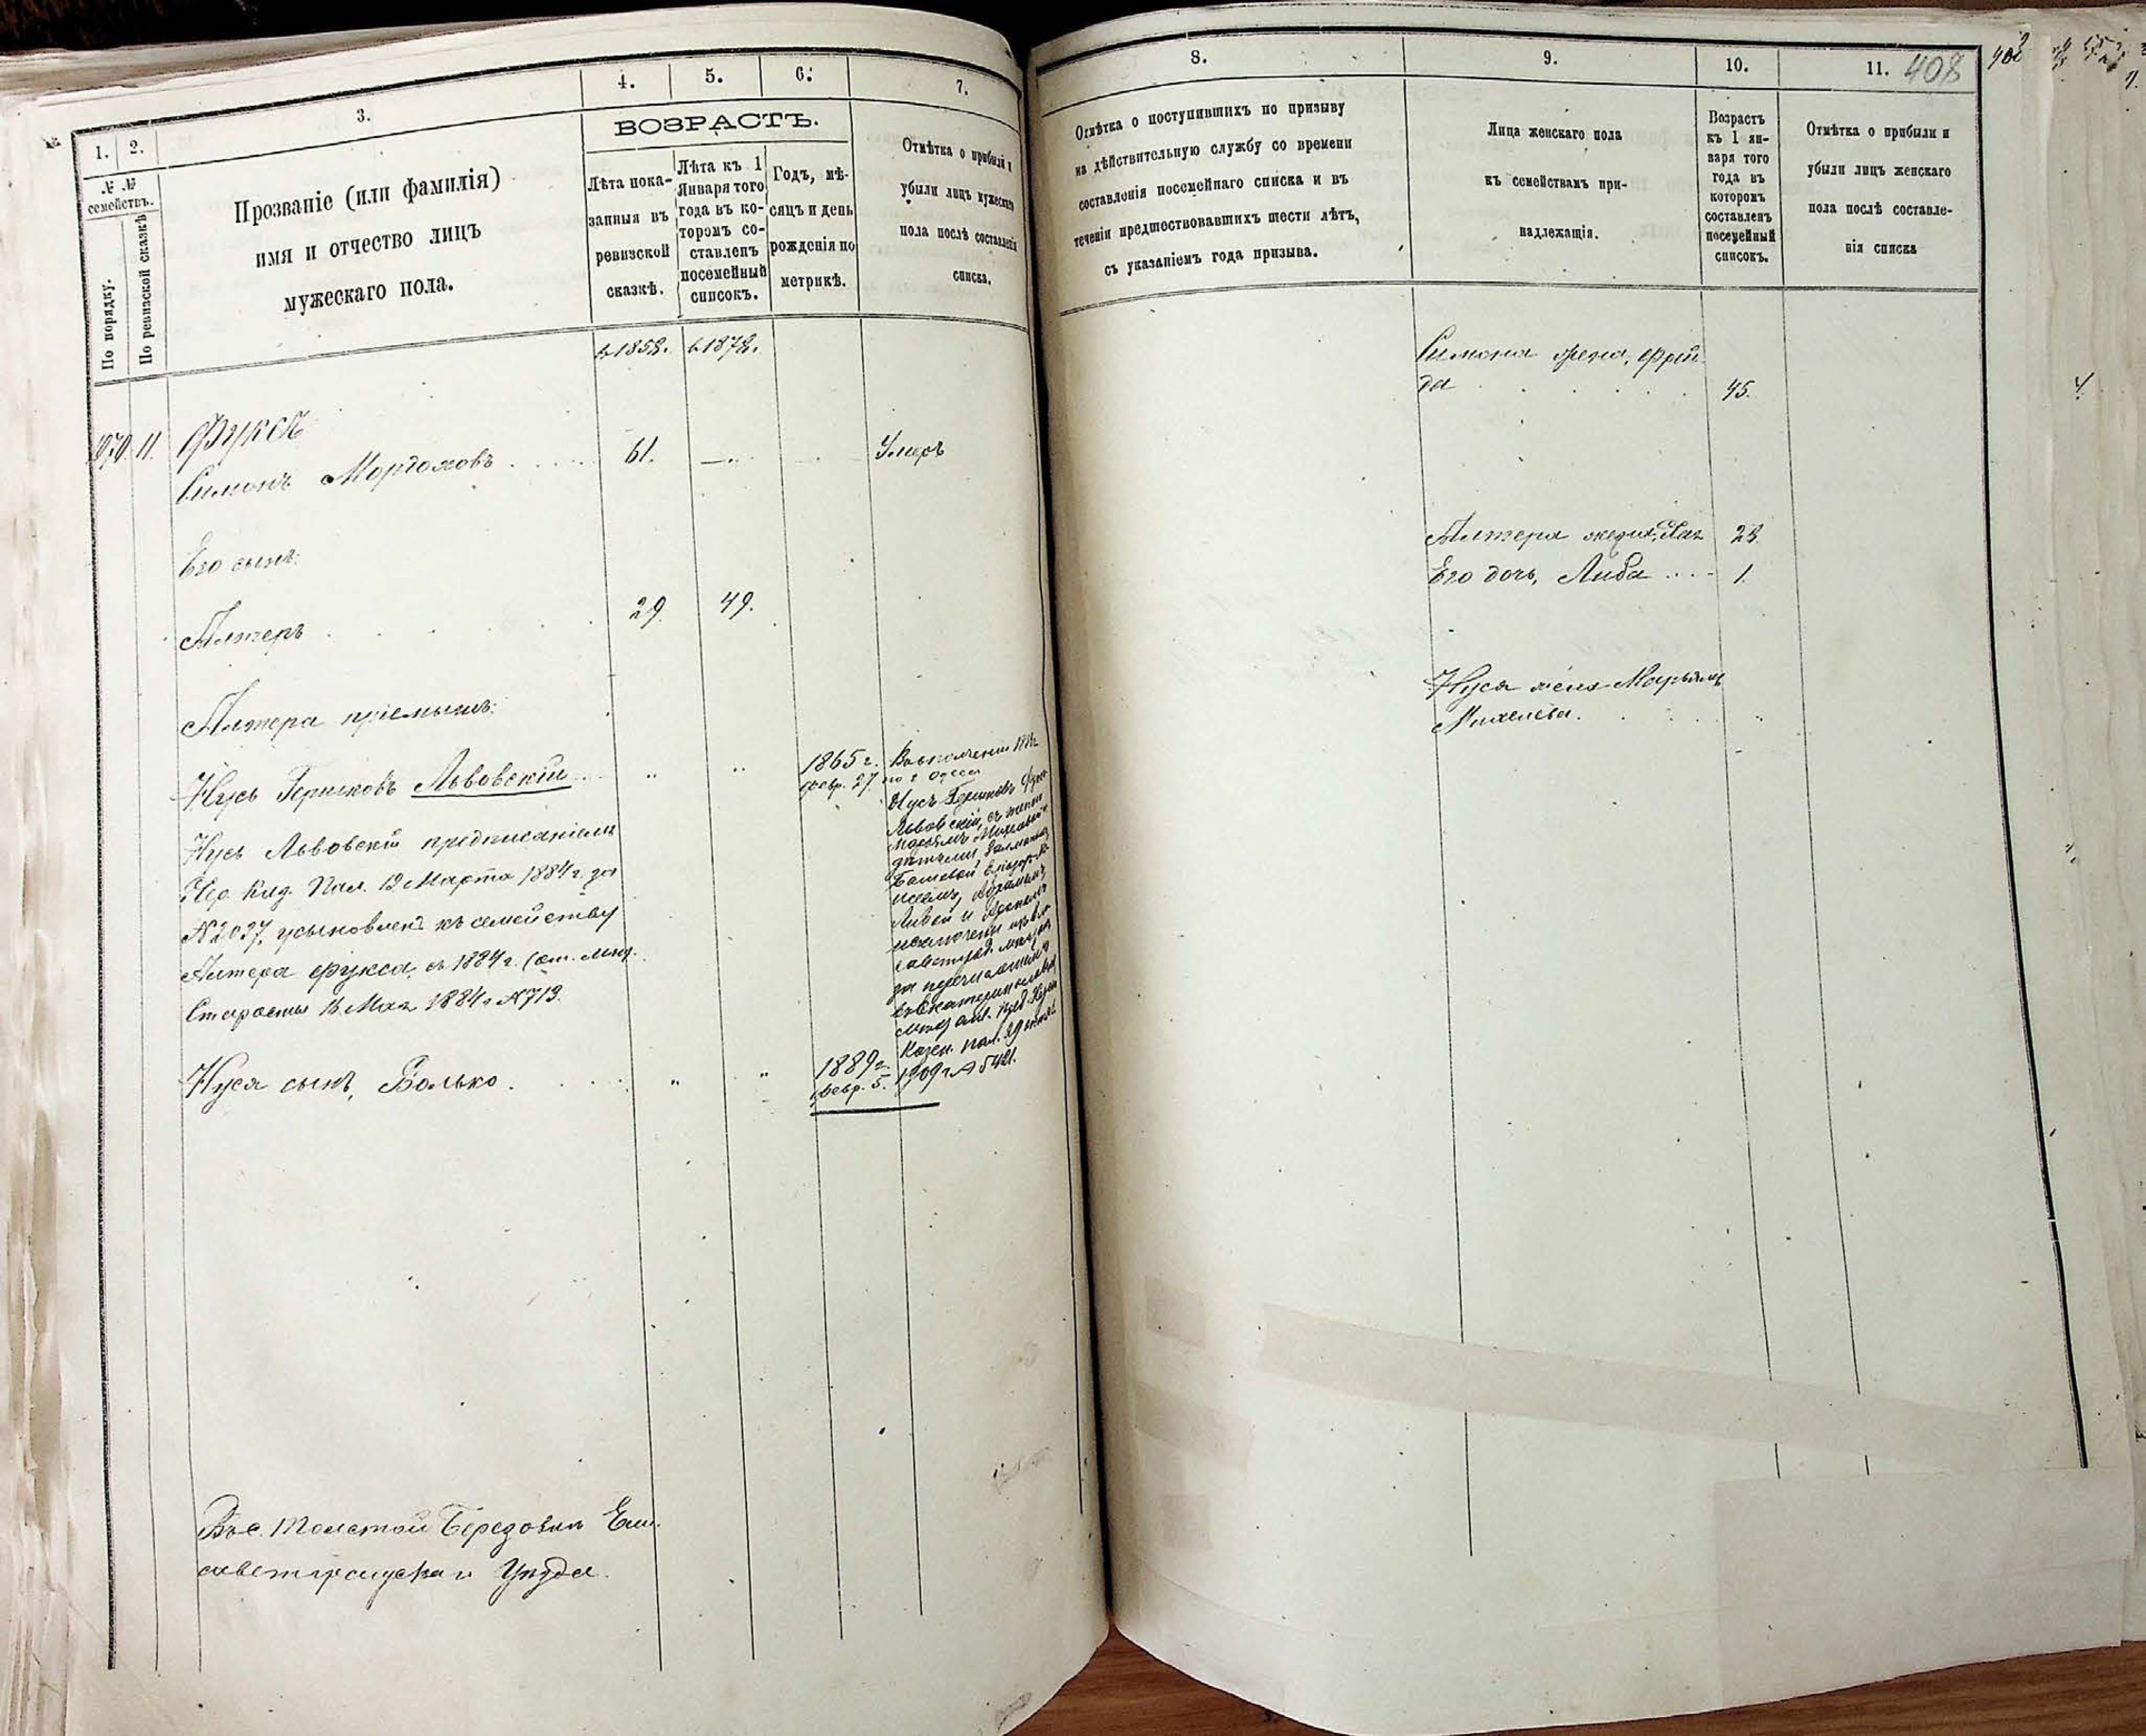 1. 2. 3. 4. 5. 6. 7.
№ №
семействъ.
По порядку.
По ревизской сказкѣ
Прозваніе (или фамилія)
имя и отчество лицъ
мужескаго пола.
ВОЗРАСТЪ.
Лѣта пока-
занныя въ
ревизской
сказкѣ.
Лѣта къ 1
Января того
года въ ко-
торомъ со-
ставленъ
посемейный
списокъ.
Годъ, мѣ-
сяцъ и день
рожденія по
метрикѣ.
Отмѣтка о прибыли и
убыли лицъ мужескаго
пола послѣ составленія
списка.
в 1858. в 1878.
11. Фуксъ
Симонъ Мордковъ 61. Умеръ
Его сынъ:
Алтеръ 29. 49.
Алтера пріемышъ:
Нусь Гершковъ Львовскій 1865 г.
февр. 27.
Нусь Львовскій предписаніемъ
Хер. Каз. Пал. 12 Марта 1884 г. за
№ 2037, усыновленъ къ семейству
Алтера Фукса съ 1884 г. (от. Мѣщ.
Старосты 18 Мая 1884 г. № 713.
по г. Одессѣ
Нусь Гершковъ
Львовскій, съ женою
Казен. пал. 29
1909 г. № 5421.
Нуся сынъ, Волько. 1889 г.
февр. 5.
Въ с. Толстой Березовкѣ Ели-
саветградскаго Уѣзда.
8. 9. 10. 11. 408
Отмѣтка о поступившихъ по призыву
на дѣйствительную службу со времени
составленія посемейнаго списка и въ
теченіи предшествовавшихъ шести лѣтъ,
съ указаніемъ года призыва.
Лица женскаго пола
къ семействамъ при-
надлежащія.
Возрастъ
къ 1 ян-
варя того
года въ
которомъ
составленъ
посемейный
списокъ.
Отмѣтка о прибыли и
убыли лицъ женскаго
пола послѣ составле-
нія списка
Симона жена, Фрей-
да 45.
Алтера жена, Хая 28
Его дочь, Либа 1.
Нуся жена Марьямъ
Михелева.